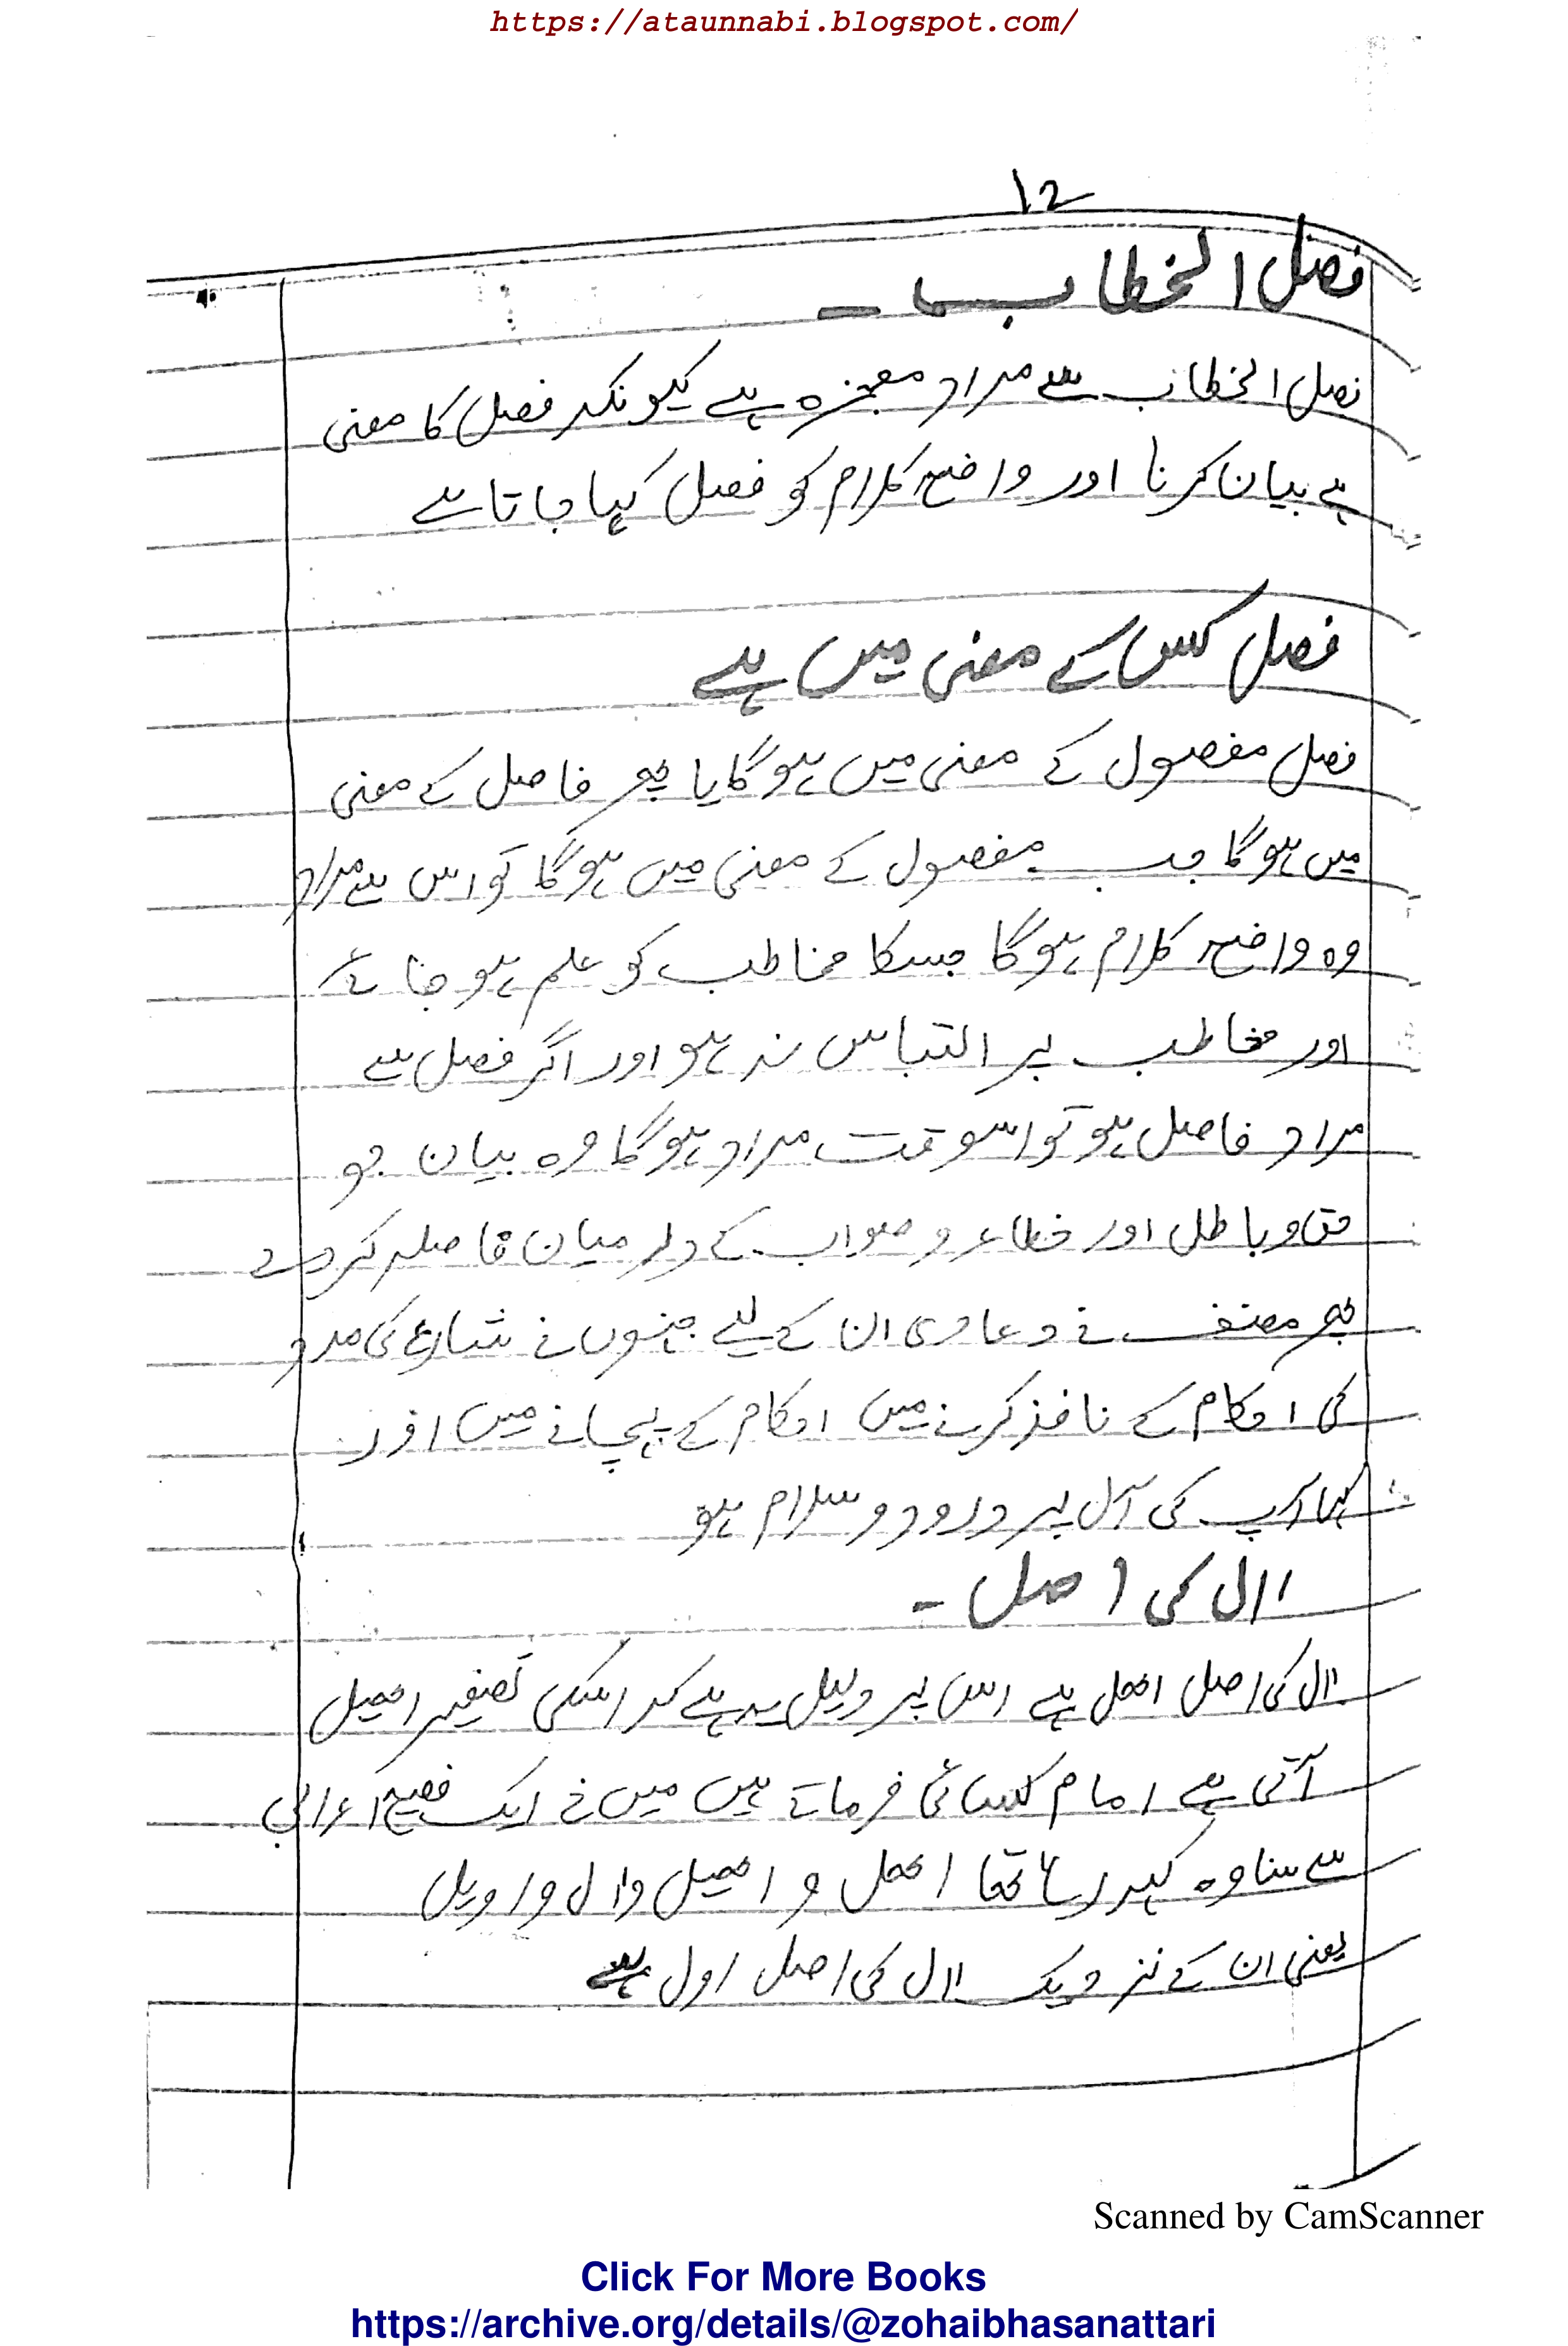 https://ataunnabi.blogspot.com/
12
فصل الخطاب ۔
فصل الخطاب سے مراد معجزہ ہے کیونکہ فصل کا معنی
ہے بیان کرنا اور واضح کلام کو فصل کہا جاتا ہے
فصل کس کے معنی میں ہے
فصل مفصول کے معنی میں ہوگا یا پھر فاصل کے معنی
میں ہوگا جب مفصول کے معنی میں ہوگا تو اس سے مراد
وہ واضح کلام ہوگا جسکا مخاطب کو علم ہو جائے
اور مخاطب پر التباس نہ ہو اور اگر فصل سے
مراد فاصل ہو تو اسوقت مراد ہوگا وہ بیان جو
حق و باطل اور خطاء و صواب کے درمیان فاصلہ کردے
پھر مصنف نے دعا دی ان کے لیے جنہوں نے شارع کی مدد
کی احکام کے نافذ کرنے میں احکام کے پہچانے میں اور
کہا آپ کی آل پر درود و سلام ہو
اال کی اصل ۔
اال کی اصل اھل ہے اس پر دلیل یہ ہے کہ اسکی تصغیر اھیل
آتی ہے امام کسائی فرماتے ہیں میں نے ایک فصیح اعرابی
سے سنا وہ کہہ رہا تھا اھل و اھیل واال و اویل
یعنی ان کے نزدیک اال کی اصل اول ہے
Scanned by CamScanner
Click For More Books
https://archive.org/details/@zohaibhasanattari